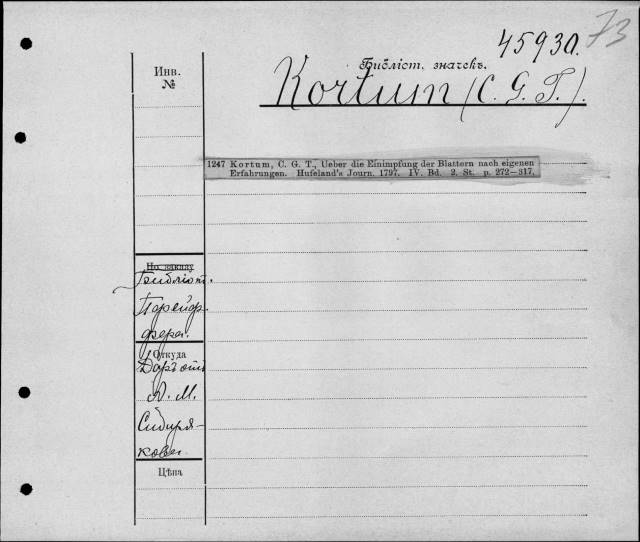 45930.
73
Библіот. значекъ.
Инв.
№
Kortum (C. G. T.).
1247 Kortum, C. G. T., Ueber die Einimpfung der Blattern nach eigenen
Erfahrungen. Hufeland's Journ. 1797. IV. Bd. 2. St. p. 272—317.
По заказу
Библіот.
Пфейф-
фера.
Откуда
Даръ отъ
А. М.
Сибиря-
кова.
Цѣна